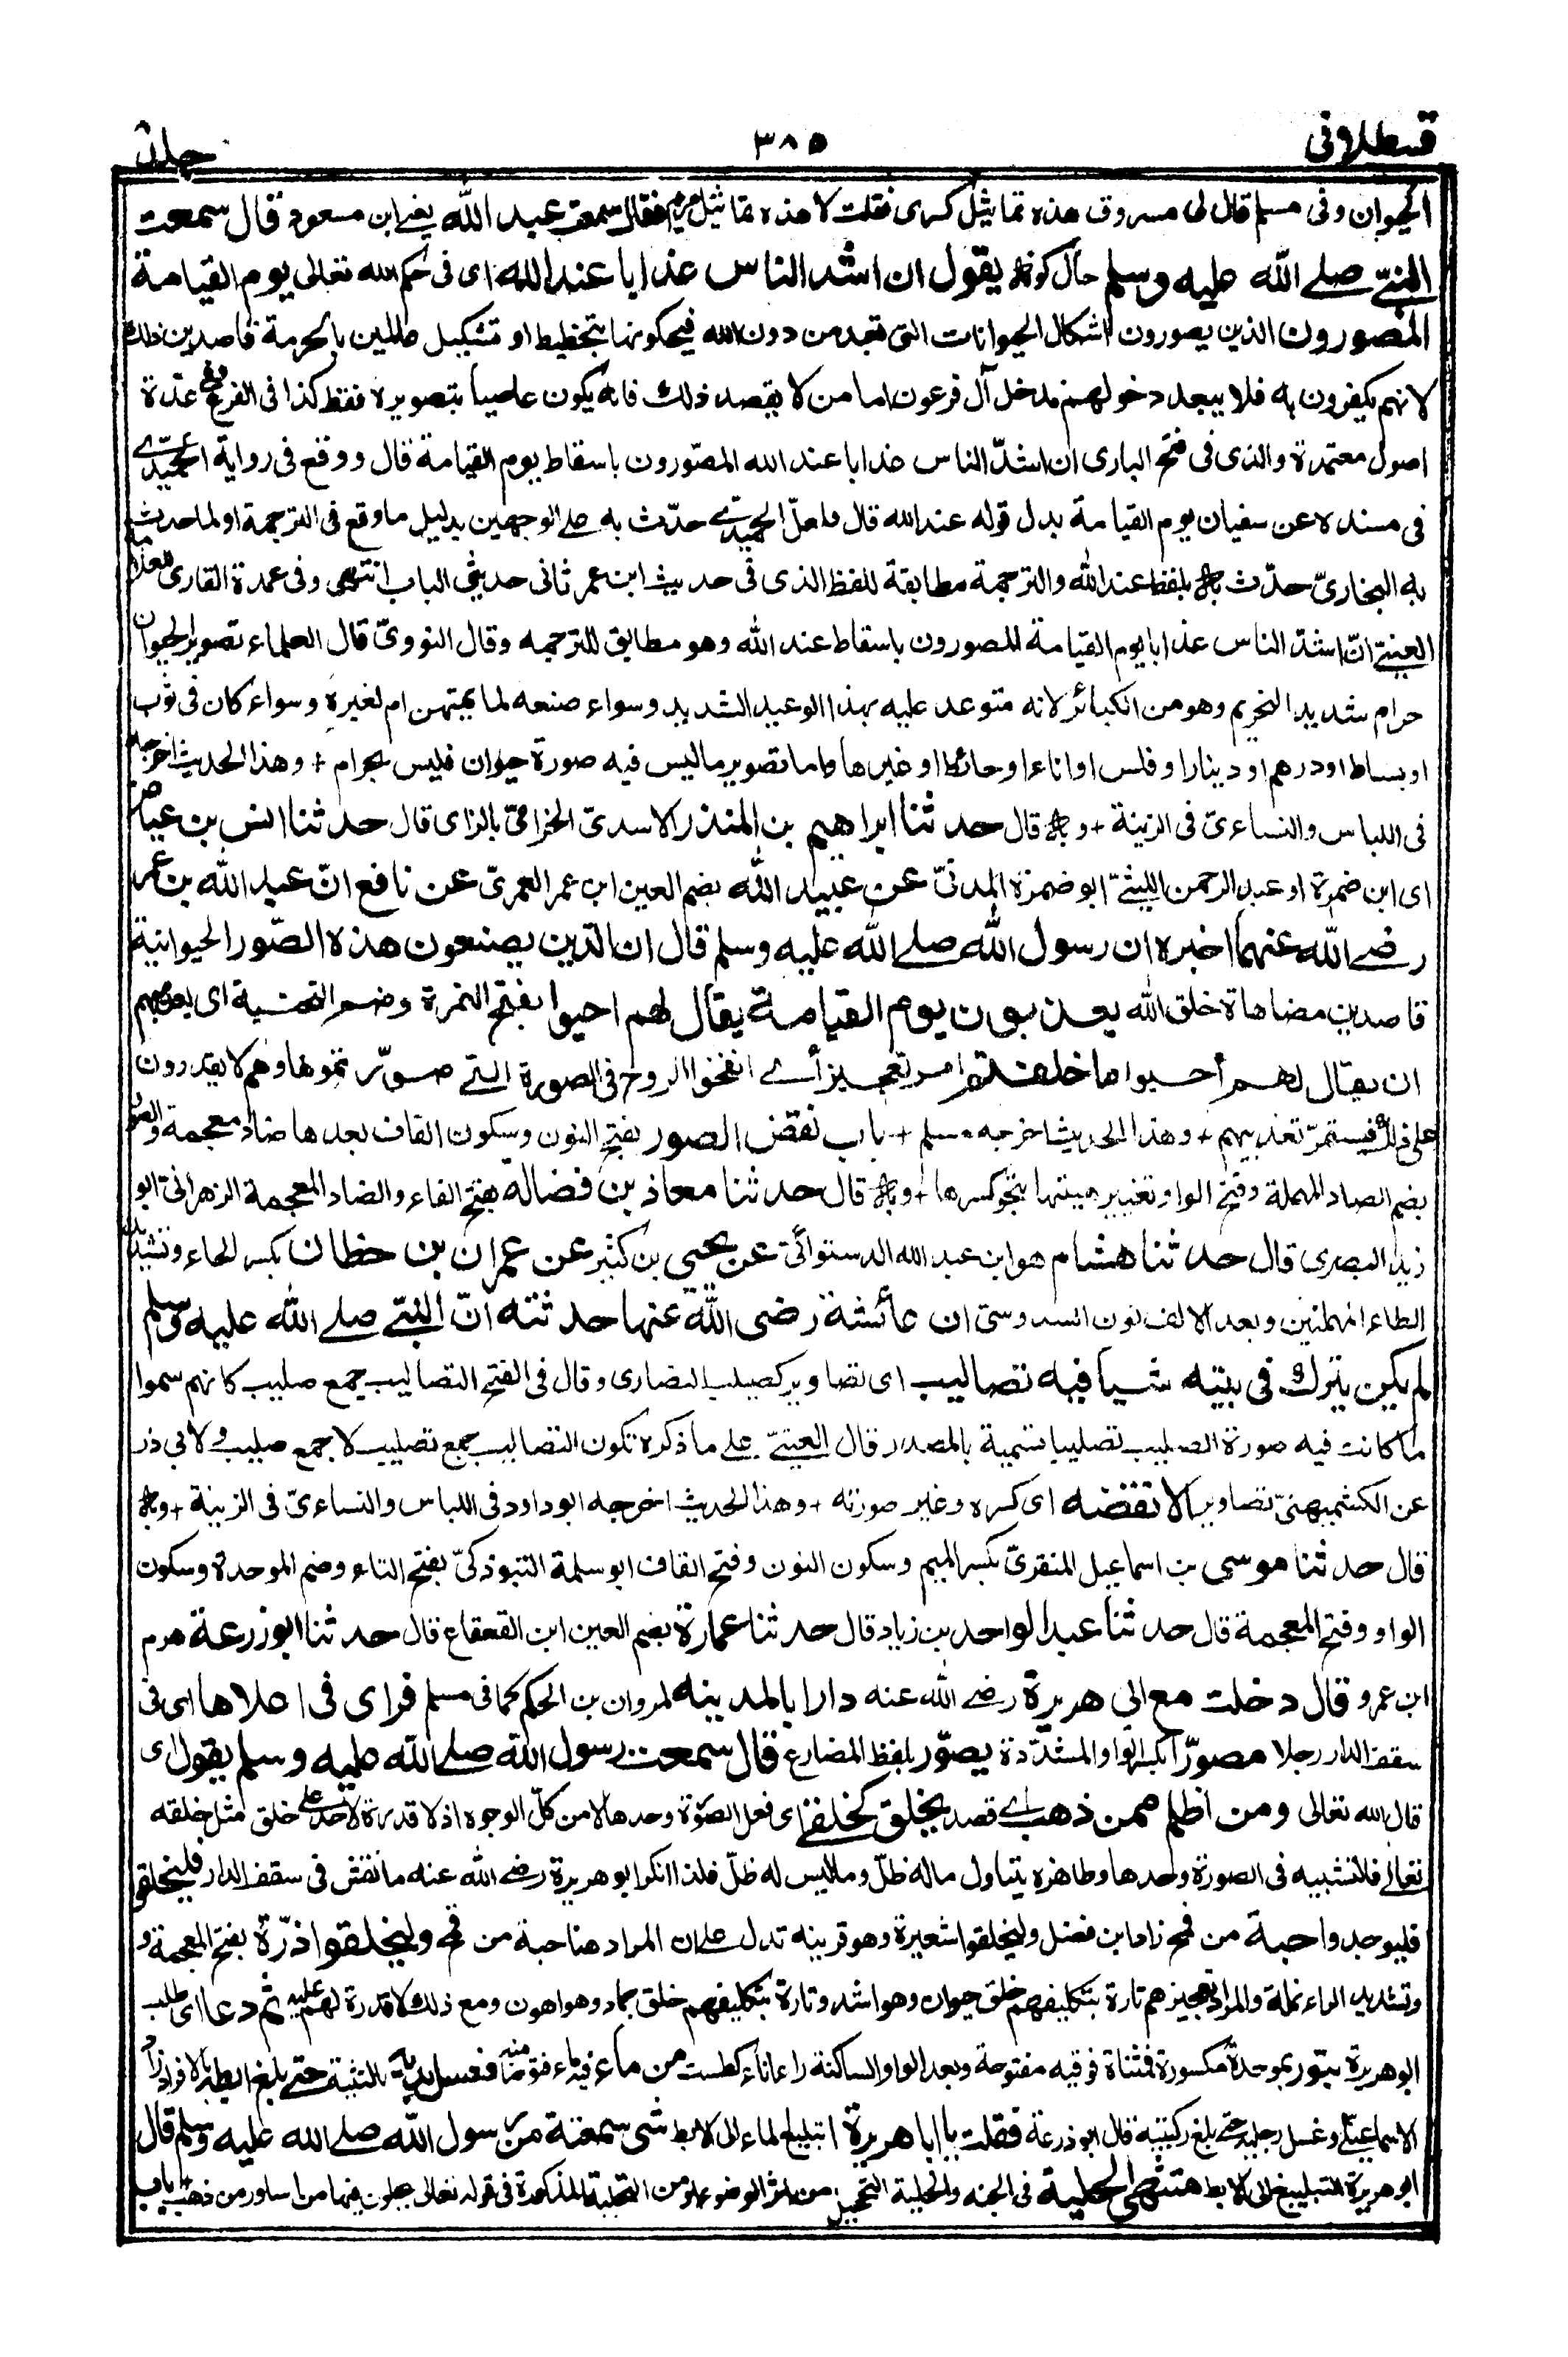 قسطلانی ٣٨٥ جلد ٨
الحیوان وفی مسلم قال لی مسروق هذه تماثیل کسری فقلت لا هذه تماثیل مریم فقال سمعت عبد الله یعنی ابن مسعود قال سمعت
النبی صلی الله علیه وسلم حال کونه یقول ان اشد الناس عذابا عند الله ای فی حکم الله تعالی یوم القیامة
المصورون الذین یصورون اشکال الحیوانات التی تعبد من دون الله فیحکونها بتخطیط او تشکیل عالمین بالحرمة قاصدین ذلک
لانهم یکفرون به فلا یبعد دخولهم مدخل آل فرعون اما من لا یقصد ذلک فانه یکون عاصیا بتصویره فقط کذا فی الفرع وفی عدّة
اصول معتمدة والذی فی فتح الباری ان اشدّ الناس عذابا عند الله المصّورون باسقاط یوم القیامة قال ووقع فی روایة الحمیدی
فی مسنده عن سفیان یوم القیامة بدل قوله عند الله قال فلعلّ الحمیدی حدّث به علی الوجهین بدلیل ما وقع فی الترجمة او لما حدث
به البخاریّ حدّث به بلفظ عند الله والترجمة مطابقة للفظ الذی فی حدیث ابن عمر ثانی حدیثی الباب انتهی وفی عمدة القاری للعلامة
العینیّ انّ اشدّ الناس عذابا یوم القیامة المصورون باسقاط عند الله وهو مطابق للترجمه وقال النوویّ قال العلماء تصویر الحیوان
حرام شدید التحریم وهو من الکبائر لانه متوعد علیه بهذا الوعید الشدید وسواء صنعه لما یمتهن ام لغیره وسواء کان فی ثوب
او بساط او درهم او دینار او فلس او اناء او حائط او غیرها واما تصویر ما لیس فیه صورة حیوان فلیس بحرام + وهذا الحدیث اخرجه مسلم
فی اللباس والنساءیّ فی الزینة + وبه قال حدثنا ابراهیم بن المنذر الاسدیّ الحزامیّ بالزای قال حدثنا انس بن عیاض
ای ابن ضمرة او عبد الرحمن اللیثیّ ابو ضمرة المدنیّ عن عبید الله بضم العین ابن عمر العمریّ عن نافع انّ عبد الله بن عمر
رضی الله عنهما اخبره ان رسول الله صلی الله علیه وسلم قال ان الذین یصنعون هذه الصّور الحیوانیة
قاصدین مضاهاة خلق الله یعذبون یوم القیامة یقال لهم احیوا بفتح الهمزة وضم التحتیة ای یعذبهم
ان یقال لهم أحیوا ما خلقتم امر تعجیز أی انفخوا الروح فی الصورة التی صوّرتموها وهم لا یقدرون
علی ذلک فیستمرّ تعذیبهم + وهذا الحدیث اخرجه مسلم + باب نقض الصور بفتح النون وسکون القاف بعدها ضاد معجمة والصور
بضم الصاد المهملة وفتح الواو وتغییر هیئتها بنحو کسرها + وبه قال حدثنا معاذ بن فضالة بفتح الفاء والضاد المعجمة الزهرانیّ ابو
زید البصری قال حدثنا هشام هو ابن عبد الله الدستوائیّ عن یحیی بن کثیر عن عمران بن حطان بکسر الحاء وتشدید
الطاء المهملتین وبعد الالف نون السدوسیّ ان عائشة رضی الله عنها حدثته انّ النبیّ صلی الله علیه وسلم
لم یکن یترک فی بیته شیأ فیه تصالیب ای تصاویر کصلیب النصاری وقال فی الفتح التصالیب جمع صلیب کانهم سموا
ما کانت فیه صورة الصلیب تصلیبا تسمیة بالمصدر قال العینیّ علی ما ذکره تکون التصالیب جمع تصلیب لا جمع صلیب ولابی ذر
عن الکشمیهنیّ تصاویر الا نقضه ای کسره وغیر صورته + وهذا الحدیث اخرجه ابو داود فی اللباس والنساءیّ فی الزینة + وبه
قال حدثنا موسی بن اسماعیل المنقریّ بکسر المیم وسکون النون وفتح القاف ابو سلمة التبوذکیّ بفتح التاء وضم الموحدة وسکون
الواو وفتح المعجمة قال حدثنا عبد الواحد بن زیاد قال حدثنا عمارة بضم العین ابن القعقاع قال حدثنا ابو زرعة هرم
ابن عمرو قال دخلت مع ابی هریرة رضی الله عنه دارا بالمدینه لمروان بن الحکم کما فی مسلم فرای فی اعلاها ای فی
سقف الدار رجلا مصوّرا بکسر الواو المشدّدة یصوّر بلفظ المضارع قال سمعت رسول الله صلی الله علیه وسلم یقول ای
قال الله تعالی ومن اظلم ممن ذهب ای قصد یخلق کخلقی ای فعل الصورة وحدها لا من کلّ الوجوه اذ لا قدرة لاحد علی خلق مثل خلقه
تعالی فالتشبیه فی الصورة وحدها وظاهره یتناول ما له ظلّ وما لیس له ظلّ فلذا انکر ابو هریرة رضی الله عنه ما نقش فی سقف الدار فلیخلقوا
فلیوجدوا حبة من قمح زاد ابن فضل ولیخلقوا شعیرة وهو قرینه تدل علی ان المراد هنا حبة من قمح ولیخلقوا ذرّة بفتح المعجمة و
وتشدید الراء نملة والمراد تعجیزهم تارة بتکلیفهم خلق حیوان وهو اشد وتارة بتکلیفهم خلق جماد وهو اهون ومع ذلک لا قدرة لهم علیه ثم دعا ای طلب
ابو هریرة بتور بموحدة مکسورة فمثناة فوقیه مفتوحة وبعد الواو الساکنة راء اناء کطست من ماء فیه ماء فتوضأ منه فغسل یدیه بالتثنیة حتی بلغ ابطه بالافراد زاد
الاسماعیلی وغسل رجلیه حتی بلغ رکبتیه قال ابو ذرعة فقلت یا ابا هریرة اتبلیغ الماء الی الابط شی سمعته من رسول الله صلی الله علیه وسلم قال
ابو هریرة التبلیغ الی الابط منتهی الحلیة فی الجنه والحلیة التحجیل من اثر الوضوء او من التحلیة المذکورة فی قوله تعالی یحلون فیها من اساور من ذهب باب